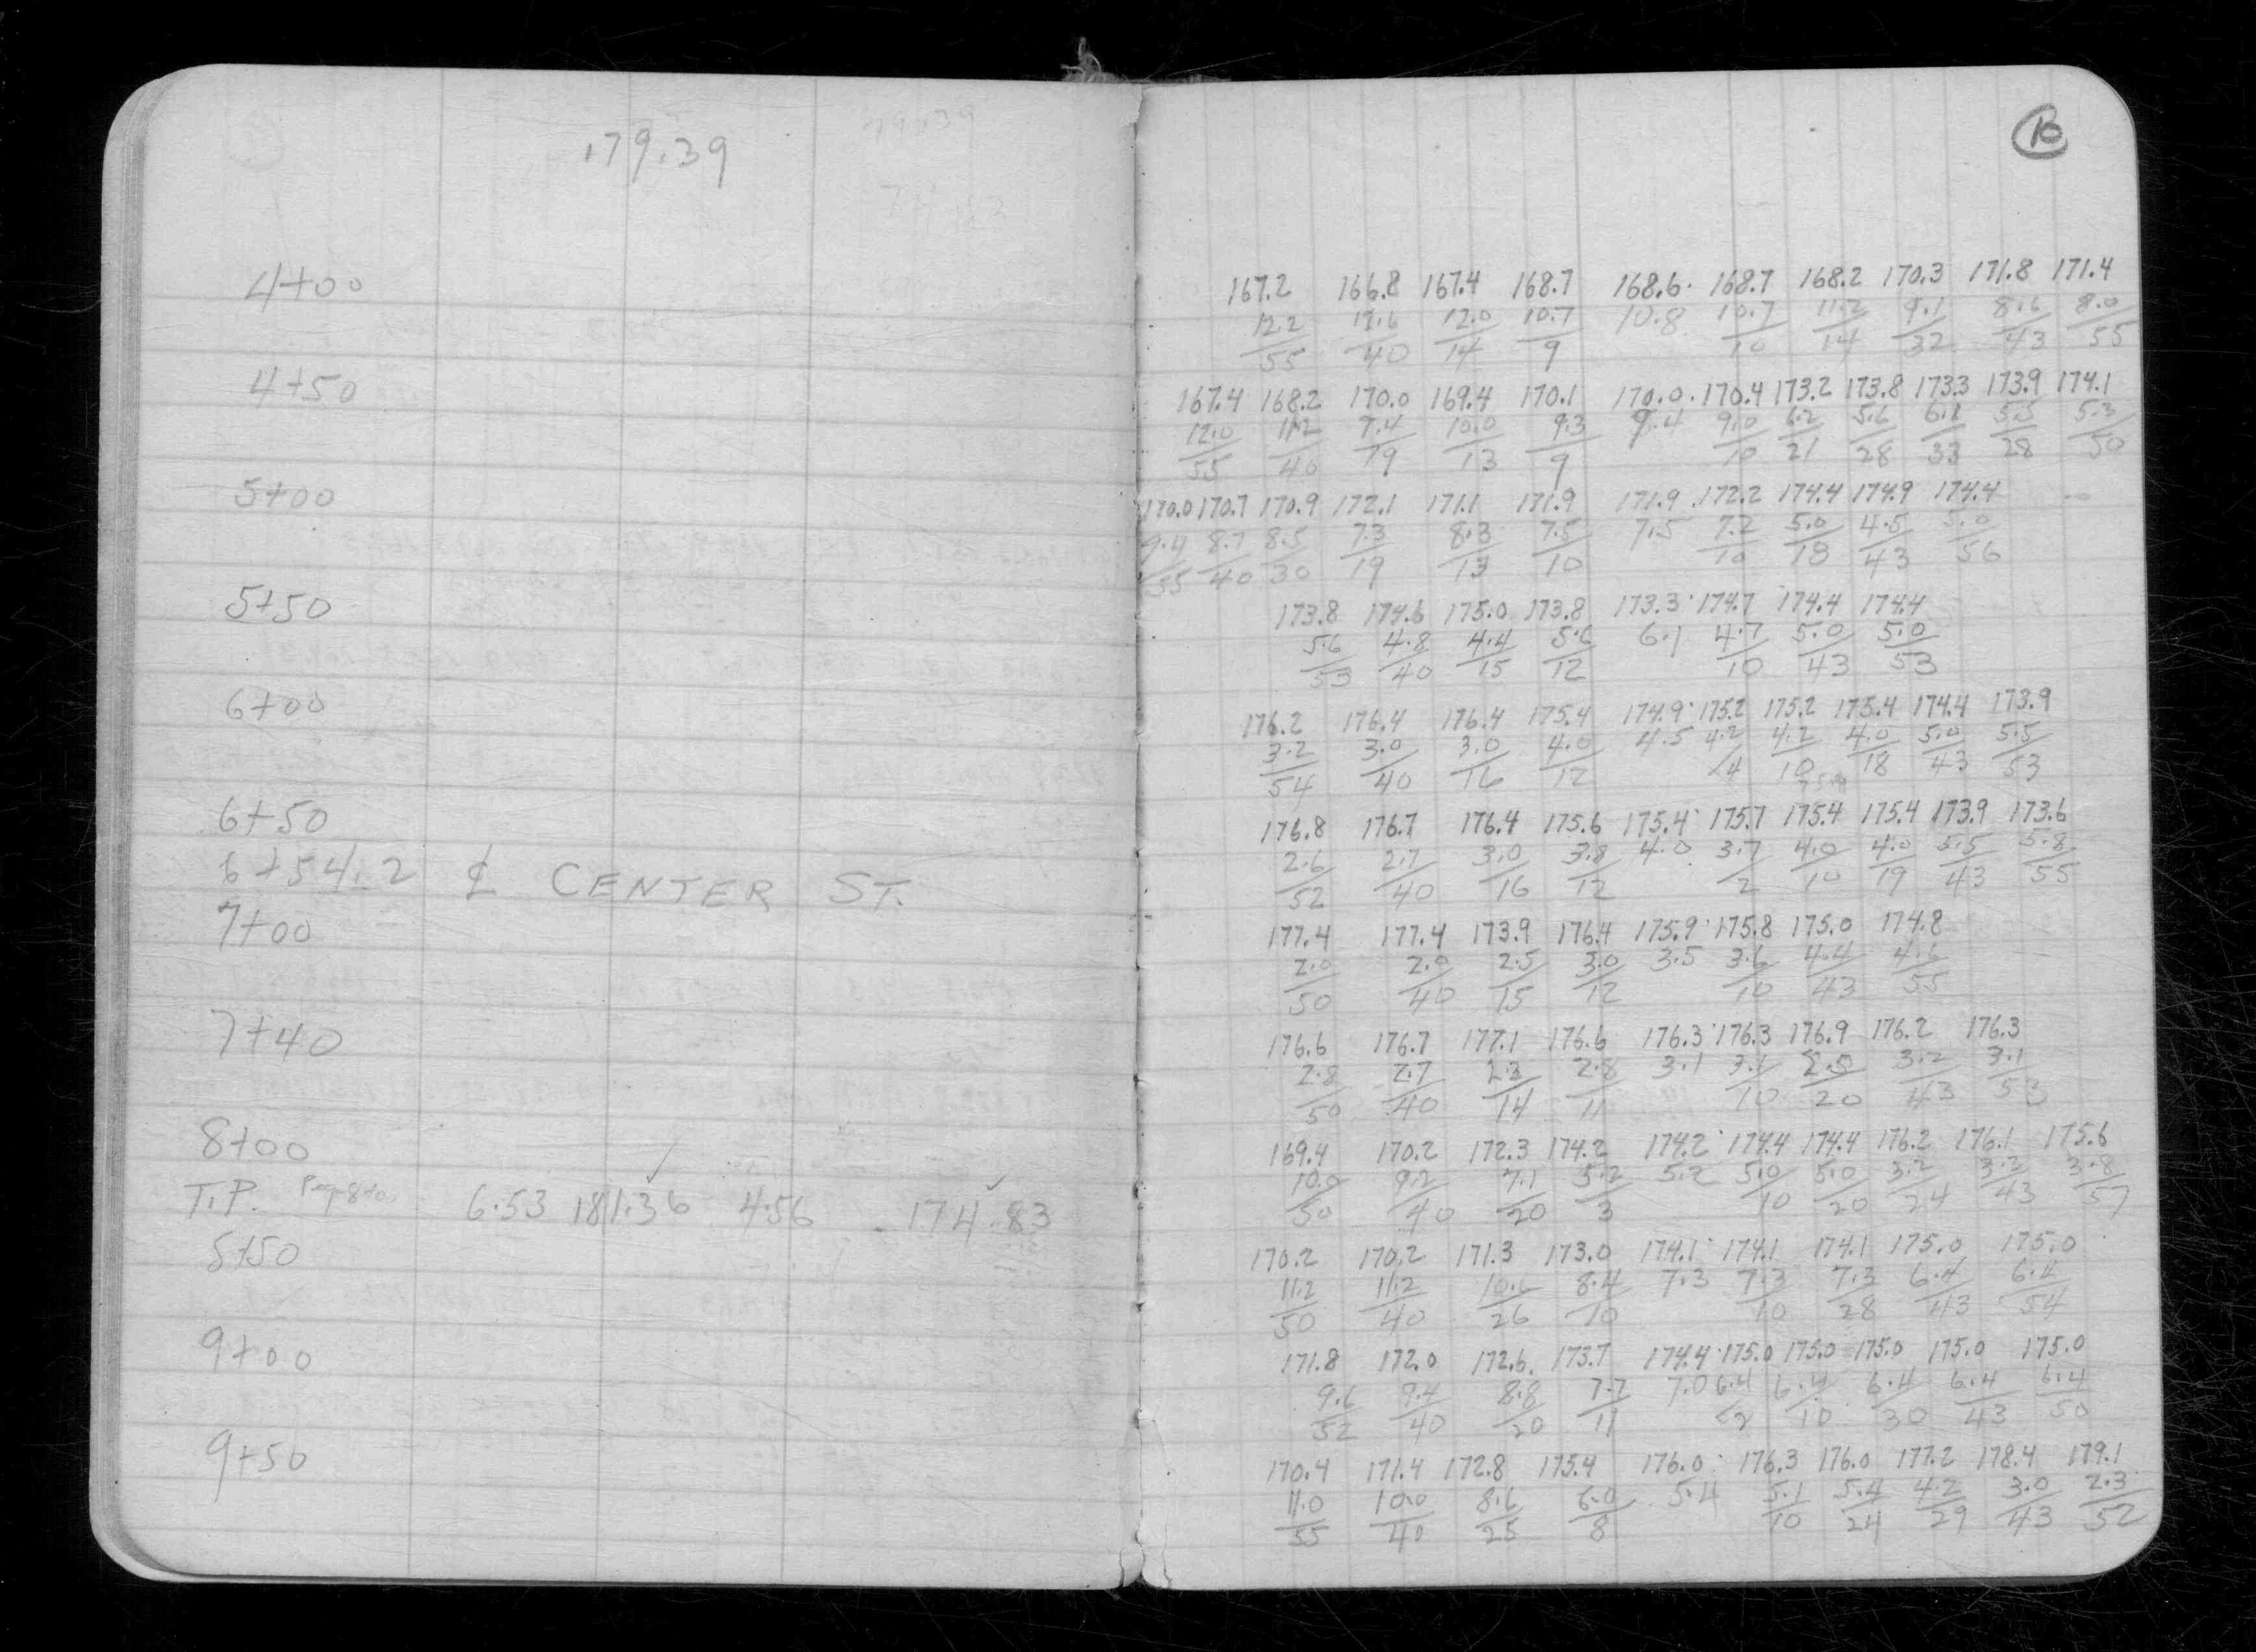 179.39
10
4+00 167.2 166.8 167.4 168.7 168.6 168.7 168.2 170.3 171.8 171.4
12.2 12.6 12.0 10.7 10.8 10.7 11.2 9.1 8.6 8.0
55 40 14 9 10 14 32 43 55
4+50 167.4 168.2 170.0 169.4 170.1 170.0 170.4 173.2 173.8 173.3 173.9 174.1
12.0 11.2 9.4 10.0 9.3 9.4 9.0 6.2 5.6 6.1 5.5 5.3
55 40 19 13 9 10 21 28 33 28 50
5+00 170.0 170.7 170.9 172.1 171.1 171.9 171.9 172.2 174.4 174.9 174.4
9.4 8.7 8.5 7.3 8.3 7.5 7.5 7.2 5.0 4.5 5.0
55 40 30 19 13 10 10 18 43 56
5+50 173.8 174.6 175.0 173.8 173.3 174.7 174.4 174.4
5.6 4.8 4.4 5.6 6.1 4.7 5.0 5.0
53 40 15 12 10 43 53
6+00 176.2 176.4 176.4 175.4 174.9 175.2 175.2 175.4 174.4 173.9
3.2 3.0 3.0 4.0 4.5 4.2 4.2 4.0 5.0 5.5
54 40 16 12 4 10 18 43 53
6+50 176.8 176.7 176.4 175.6 175.4 175.7 175.4 175.4 173.9 173.6
2.6 2.7 3.0 3.8 4.0 3.7 4.0 4.0 5.5 5.8
6+54.2 ℄ CENTER ST.
52 40 16 12 2 10 19 43 55
7+00 177.4 177.4 173.9 176.4 175.9 175.8 175.0 174.8
2.0 2.0 2.5 3.0 3.5 3.6 4.4 4.6
50 40 15 12 10 43 55
7+40 176.6 176.7 177.1 176.6 176.3 176.3 176.9 176.2 176.3
2.8 2.7 2.3 2.8 3.1 3.1 2.5 3.2 3.1
50 40 14 11 10 20 43 53
8+00 169.4 170.2 172.3 174.2 174.2 174.4 174.4 176.2 176.1 175.6
10.0 9.2 7.1 5.2 5.2 5.0 5.0 3.2 3.2 3.8
T.P. 6.53 181.36 4.56 174.83
50 40 20 3 10 20 24 43 57
8+50 170.2 170.2 171.3 173.0 174.1 174.1 174.1 175.0 175.0
11.2 11.2 10.6 8.4 7.3 7.3 7.3 6.4 6.4
50 40 26 10 10 28 43 54
9+00 171.8 172.0 172.6 173.7 174.4 175.0 175.0 175.0 175.0 175.0
9.6 9.4 8.8 7.7 7.0 6.4 6.4 6.4 6.4 6.4
52 40 20 11 2 10 30 43 50
9+50 170.4 171.4 172.8 175.4 176.0 176.3 176.0 177.2 178.4 179.1
11.0 10.0 8.6 6.0 5.4 5.1 5.4 4.2 3.0 2.3
55 40 25 8 10 24 29 43 52